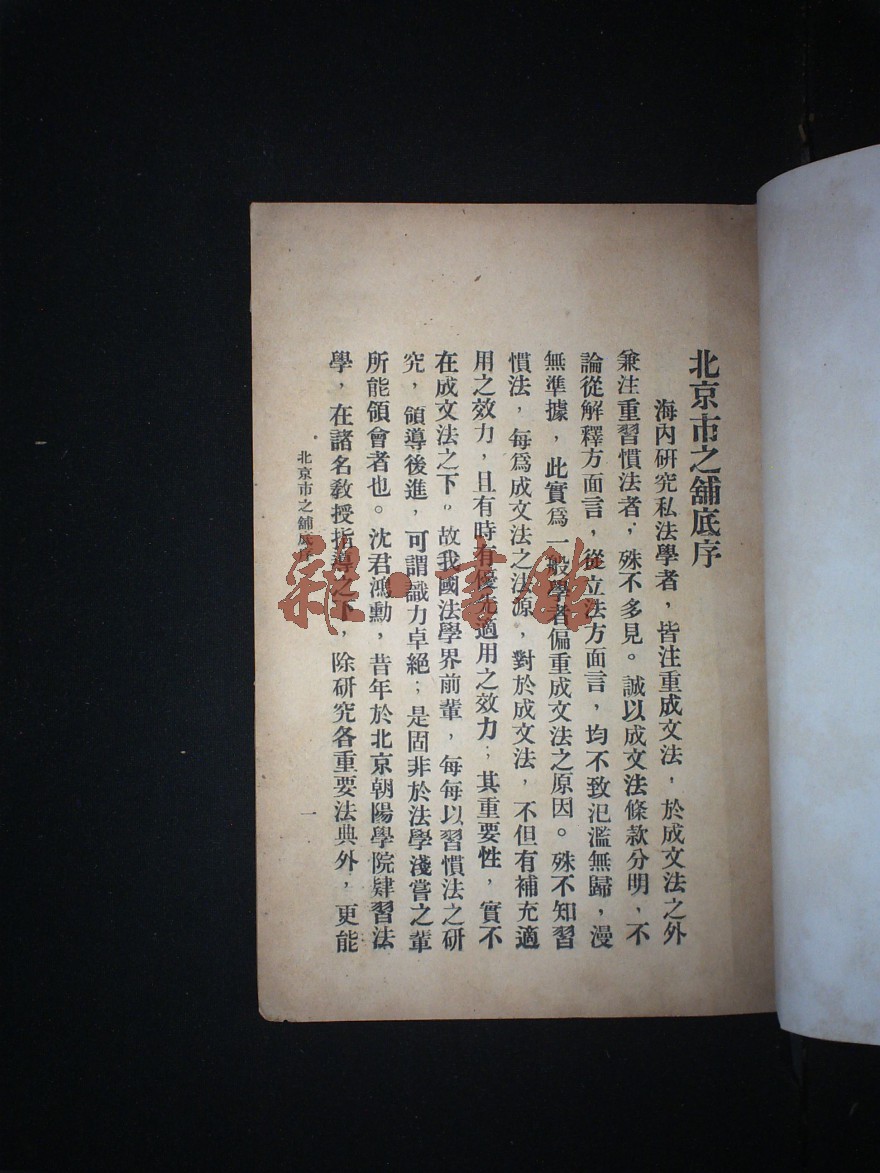 北京市之舖底序
海內研究私法學者，皆注重成文法，於成文法之外
兼注重習慣法者，殊不多見。誠以成文法條款分明，不
論從解釋方面言，從立法方面言，均不致氾濫無歸，漫
無準據，此實爲一般學者偏重成文法之原因。殊不知習
慣法，每爲成文法之法源，對於成文法，不但有補充適
用之效力，且有時有優先適用之效力；其重要性，實不
在成文法之下。故我國法學界前輩，每每以習慣法之研
究，領導後進，可謂識力卓絕；是固非於法學淺嘗之輩
所能領會者也。沈君鴻勳，昔年於北京朝陽學院肄習法
學，在諸名教授指導之下，除研究各重要法典外，更能
北京市之舖底序
一
雜·書館